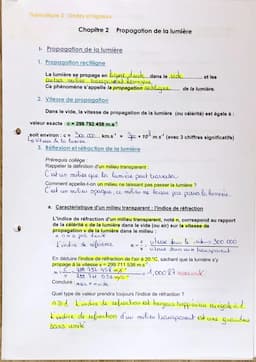 Thématique 2 : Ondes et signaux
Chapitre 2 Propagation de la lumière
1- Propagation de la lumière
1. Propagation rectiligne
La lumière se propage en ligne droite dans le vide et les
autres milieux transparent homogène.
Ce phénomène s'appelle la propagation rectiligne de la lumière.
2. Vitesse de propagation
Dans le vide, la vitesse de propagation de la lumière (ou célérité) est égale à :
valeur exacte : c = 299 792 458 m.s⁻¹
soit environ : c = 300 000 km.s⁻¹ = m.s⁻¹ (avec 3 chiffres significatifs)
la lumière
3. Réflexion et réfraction de la lumière
Prérequis collège :
Rappeler la définition d'un milieu transparent :
C'est un milieu que la lumière peut traverser.
Comment appelle-t-on un milieu ne laissant pas passer la lumière ?
C'est un milieu opaque, ce milieu ne laisse pas passer la lumière.
a. Caractéristique d'un milieu transparent : l'indice de réfraction
L'indice de réfraction d'un milieu transparent, noté n, correspond au rapport
de la célérité c de la lumière dans le vide (ou air) sur la vitesse de
propagation v de la lumière dans le milieu :
L'indice de réfraction vitesse dans le vide 300 000
vitesse dans milieu transparent
En déduire l'indice de réfraction de l'air à 20 °C, sachant que la lumière s'y
propage à la vitesse v = 299 711 536 m.s⁻¹
299 792 458 m.s⁻¹
299 711 536 m.s⁻¹
Conclure :
Quel type de valeur prendra toujours l'indice de réfraction ?
L'indice de réfraction est toujours supérieur ou égal à 1.
L'indice de réfraction d'un milieu transparent est une grandeur
sans unité